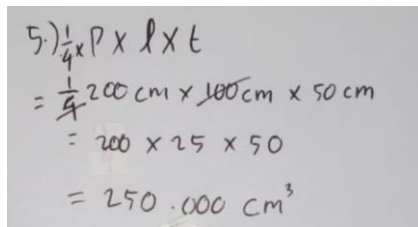 5.) 1/4 x P x l x t
= 1/4 200 cm x 100 cm x 50 cm
= 200 x 25 x 50
= 250.000 cm³